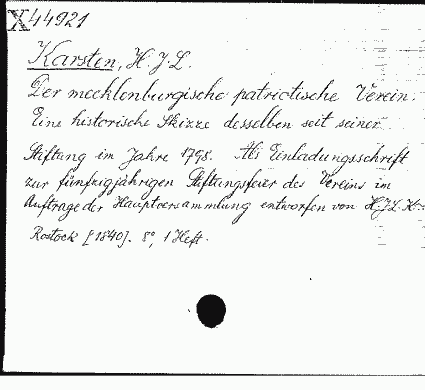 X44921
Karsten, H. J. L.
Der mecklenburgische patriotische Verein.
Eine historische Skizze desselben seit seiner
Stiftung im Jahre 1798. Als Einladungsschrift
zur fünfzigjährigen Stiftungsfeier des Vereins im
Auftrage der Hauptversammlung entworfen von H. J. L. K.
Rostock [1840]. 8°, 1 Heft.